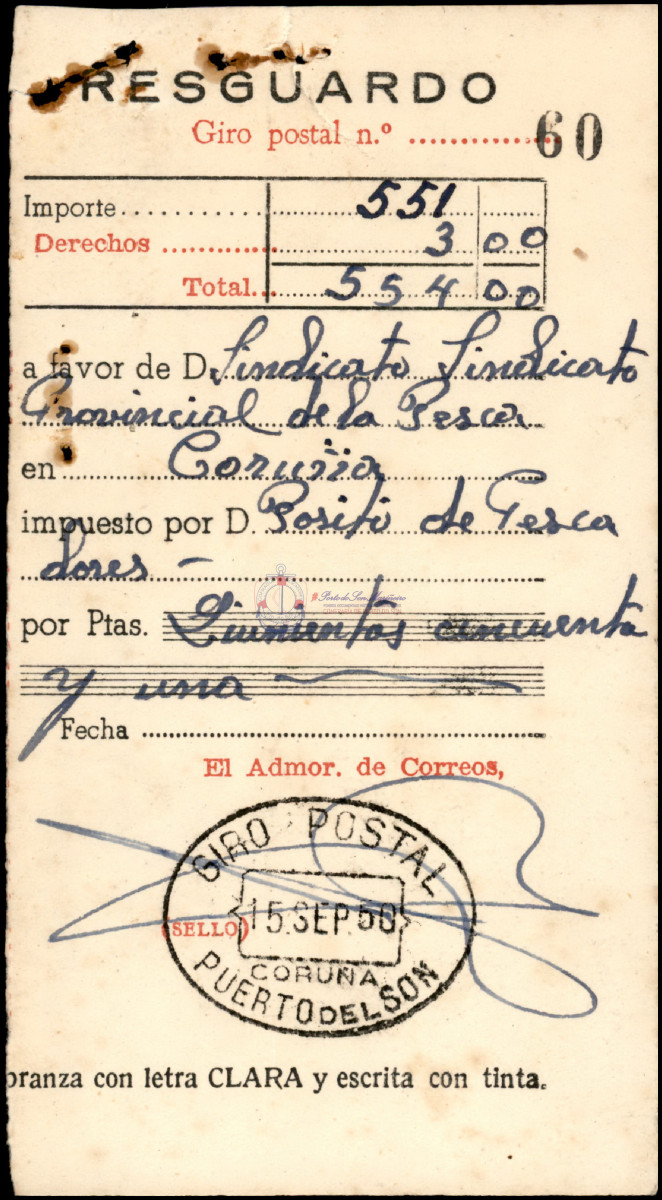 RESGUARDO
Giro postal n.º 60
Importe 551
Derechos 3 00
Total 554 00
a favor de D. Sindicato Sindicato
Provincial de la Pesca
en Coruña
impuesto por D. Posito de Pesca
dores -
Porto do Son Mariñeiro
por Ptas. Quinientas cincuenta
y una
Fecha
El Admor. de Correos,
GIRO POSTAL
15 SEP. 50
(SELLO)
CORUÑA
PUERTO DEL SON
branza con letra CLARA y escrita con tinta.